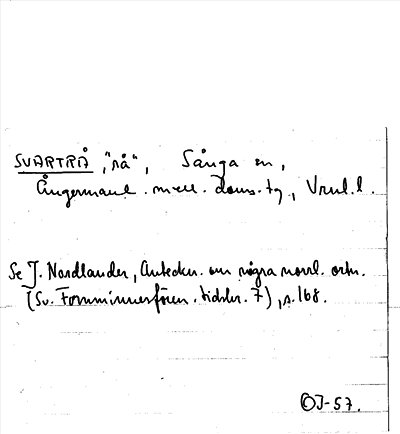 SVARTRÅ, "rå", Sånga sn,
Ångermanl. m.... doms. tg, Vrnl. l.
Se J. Nordlander, Anteckn. om några norrl. ortn.
(Sv. Fornminnesfören. tidskr. 7), s. 168.
OJ-57.